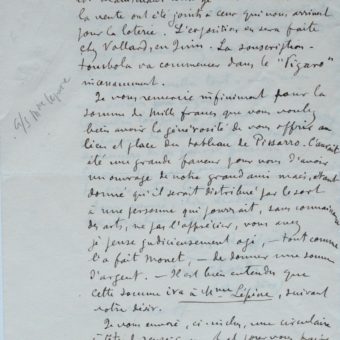 la vente ont été joints à ceux qui nous arrivent
pour la loterie. L'exposition en sera faite
chez Vollard, en Juin. La souscription-
tombola va commencer dans le "Figaro"
incessamment.
Je vous remercie infiniment pour la
somme de mille francs que vous voulez
bien avoir la générosité de vous offrir au
lieu et place du tableau de Pissarro. C'aurait
été une grande faveur pour nous d'avoir
un ouvrage de notre grand ami mais, étant
donné qu'il serait distribué par le sort
à une personne qui pourrait, sans connaissance
des arts, ne pas l'apprécier, vous avez
je pense judicieusement agi, – tout comme
l'a fait Monet, – de donner une somme
d'argent. – Il est bien entendu que
cette somme ira à Mme Lépine, suivant
votre désir.
Je vous envoie, ci-inclus, une circulaire